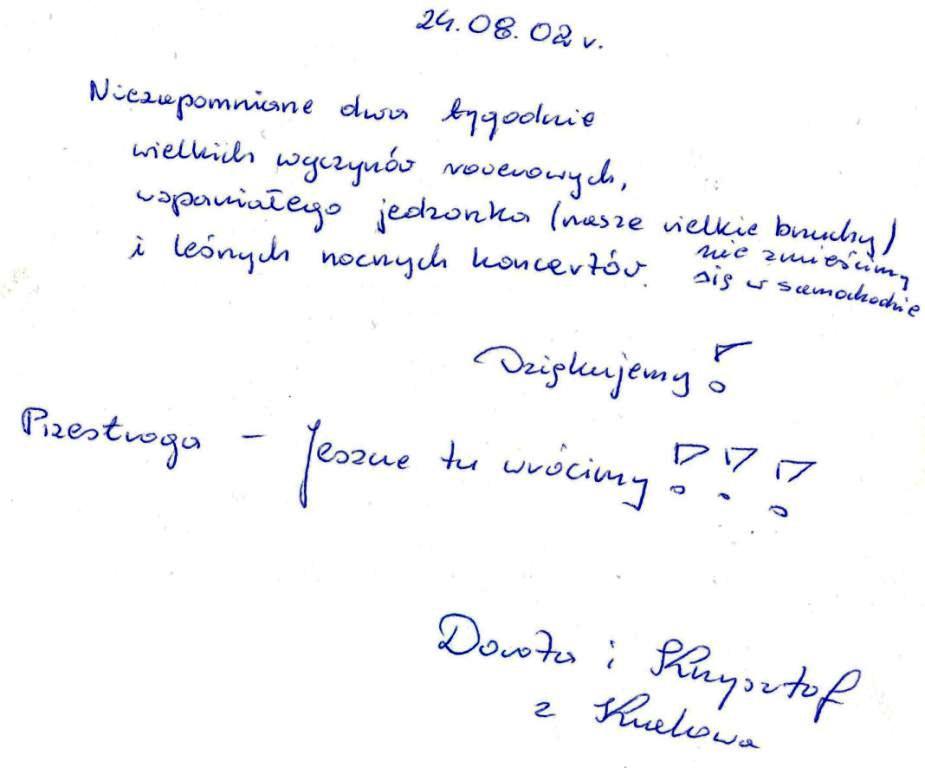 24.08.02 r.
Niezapomniane dwa tygodnie
wielkich wyczynów rowerowych,
wspaniałego jedzonka (nasze wielkie brzuchy)
nie zmieścimy
się w samochodzie
i leśnych nocnych koncertów.
Dziękujemy!
Przestroga – Jeszcze tu wrócimy!!!
Dorota i Krzysztof
z Krakowa